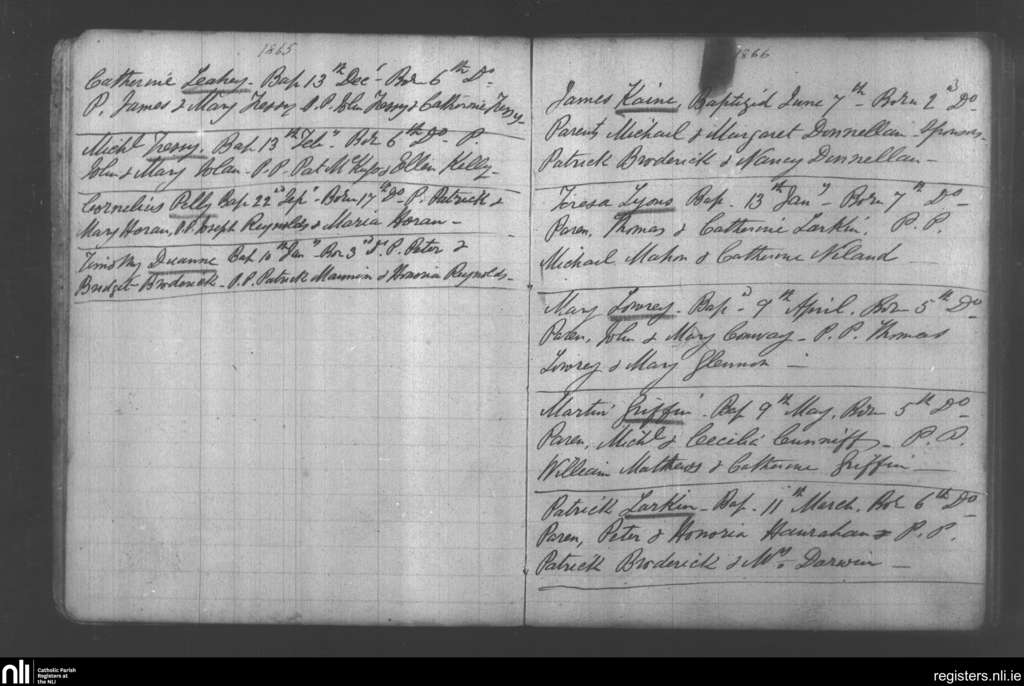 1865
Catherine Leahey - Bap 13th Decr - Bor 6th Do -
P. James & Mary Fessy P.P. John Fessy & Catherine Fessy -
Michl Fessy. Bap. 13th Feby Bor 6th Do P.
John & Mary Nolan - P.P. Pat & Ellen Kelly -
Cornelius Pelly Bap 22nd Sepr - Born 17th Do - P. Patrick &
Mary Horan, P.P. Joseph Reynolds & Maria Horan -
Timothy Duanne Bap 10th Jany - Bor 3rd Do P. Peter &
Bridget Broderick - P.P. Patrick Mannion & Honoria Reynolds -
1866
James Kaine, Baptizid June 7th - Born 2d Do
Parents Michael & Margaret Donnellan - Sponsors
Patrick Broderick & Nancy Donnellan -
Teresa Lyons Bap - 13th Jany - Born 7th Do -
Paren, Thomas & Catherine Larkin, P.P.
Michael Mahon & Catherine Niland -
Mary Lowrey - Bapd - 9th April, Bor 5th Do -
Paren, John & Mary Conway - P.P. Thomas
Lowrey & Mary Glennon -
Martin Griffin - Bap 9th May, Born 5th Do -
Paren, Michl & Cecilia Cunniff - P.P.
William Mathews & Catherine Griffin -
Patrick Larkin - Bap - 11th March, Bor 6th Do
Paren, Peter & Honoria Hanrahan & P.P.
Patrick Broderick & Darwin -
nli
Catholic Parish
Registers at
the NLI
registers.nli.ie